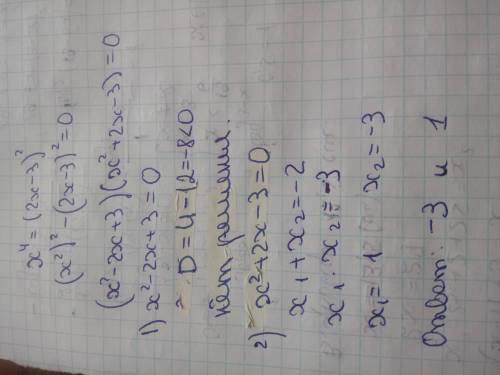 x⁴ = (2x-3)²
(x²)² - (2x-3)² = 0
(x²-2x+3)(x²+2x-3) = 0
1) x²-2x+3 = 0
D = 4-12 = -8<0
Нет решения.
2) x²+2x-3 = 0
x₁ + x₂ = -2
x₁ · x₂ = -3
x₁ = 1 x₂ = -3
Ответ: -3 и 1